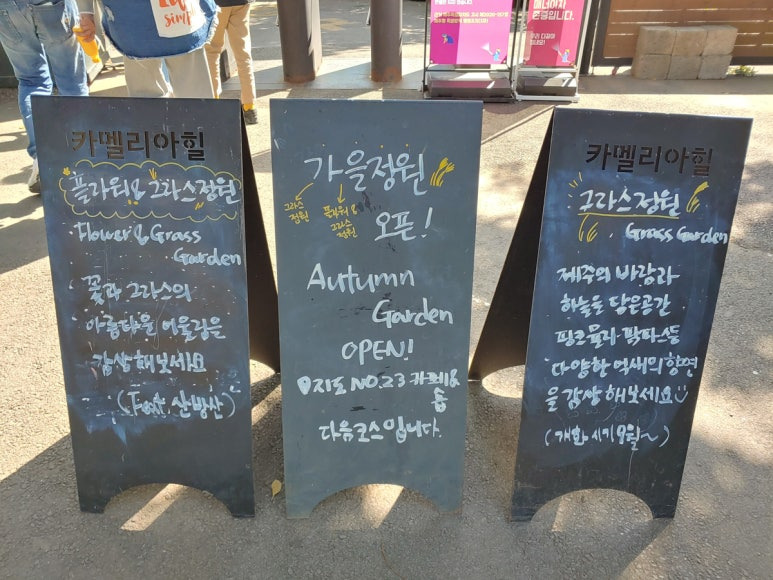 카멜리아힐
플라워& 그라스정원
Flower & Grass
Garden
꽃과 그라스의
아름다운 어울림을
감상해보세요
(Feat. 산방산)
가을정원
그라스
정원
플라워&
그라스
정원
오픈!
Autumn
Garden
OPEN!
지도 NO.23 카페&
숍
다음코스입니다.
카멜리아힐
그라스정원
Grass Garden
제주의 바람과
하늘을 담은공간
핑크뮬리·팜파스등
다양한 억새의 향연
을 감상해보세요
(개화시기 9월~)
존중입니다.